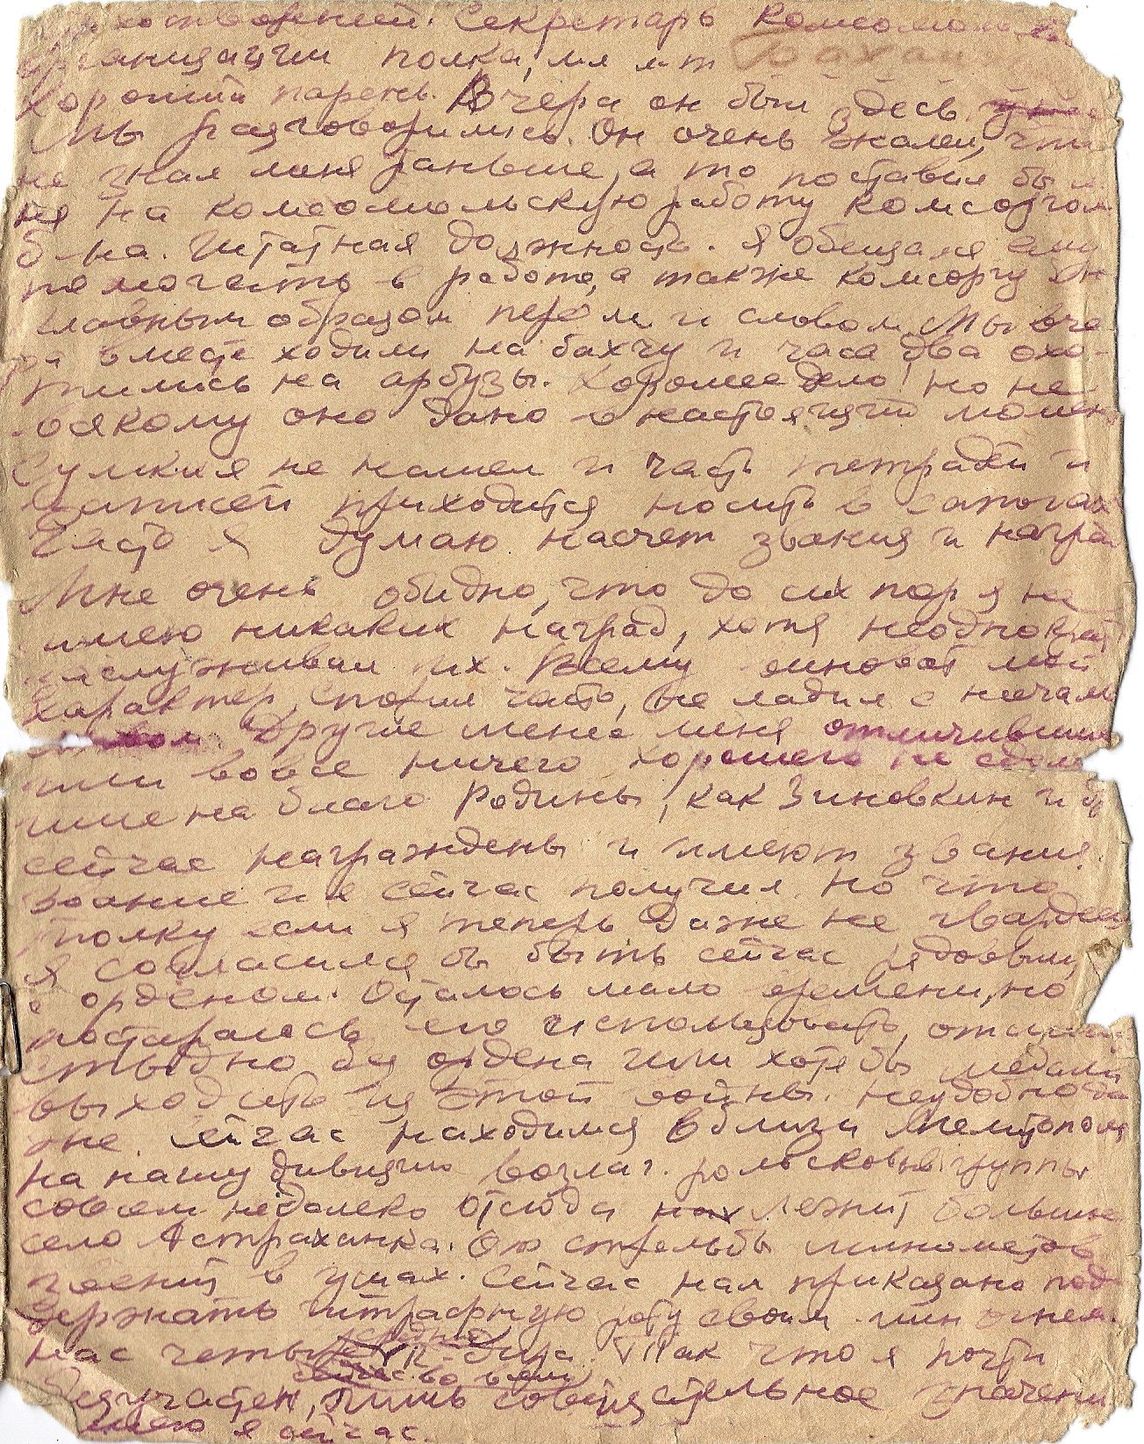 Секретарь комсомольской
организации полка, мл л-т
Хороший парень. Вчера он был здесь
Мы разговорились. Он очень жалел, что
не знал меня раньше, а то поставил бы м
ня на комсомольскую работу комсоргом
б-на. Штатная должность. Я обещался ему
помогать в работе, а также комсоргу
главным образом пером и словом. Мы вче
ра вместе ходили на бахчу и часа два охо-
тились на арбузы. Хорошее дело! но не
всякому оно дано в настоящий момент
Сумки я не нашел и часть тетрадей и
записей приходится носить в сапогах
Часто я думаю насчет звания и наград
Мне очень обидно, что до сих пор я не
имею никаких наград, хотя неоднократ
заслуживал их. Всему виноват мой
характер, спорил часто, не ладил с начал
ством. Другие менее меня отличившие
или вовсе ничего хорошего не сдела
шие на благо Родины, как Зиновкин и др
сейчас награждены и имеют звания.
Звание и я сейчас получил, но что
толку если я теперь даже не гвардеец
Я согласился бы быть сейчас рядовым,
с орденом. Осталось мало времени, но
постараюсь его использовать,
стыдно без ордена или хотя бы медали
выходить из этой войны. Неудобно да
же. Сейчас находимся вблизи Мелитополя
на нашу дивизию возлаг. роль сковыв группы
совсем недалеко отсюда лежит большое
село Астраханка. От стрельбы минометов
звенит в ушах. Сейчас нам приказано под
держать штрафную роту своим мин огнем.
нас четыре к-дира. Так что я почти
безучастен, лишь совещательное значени
имею я сейчас.